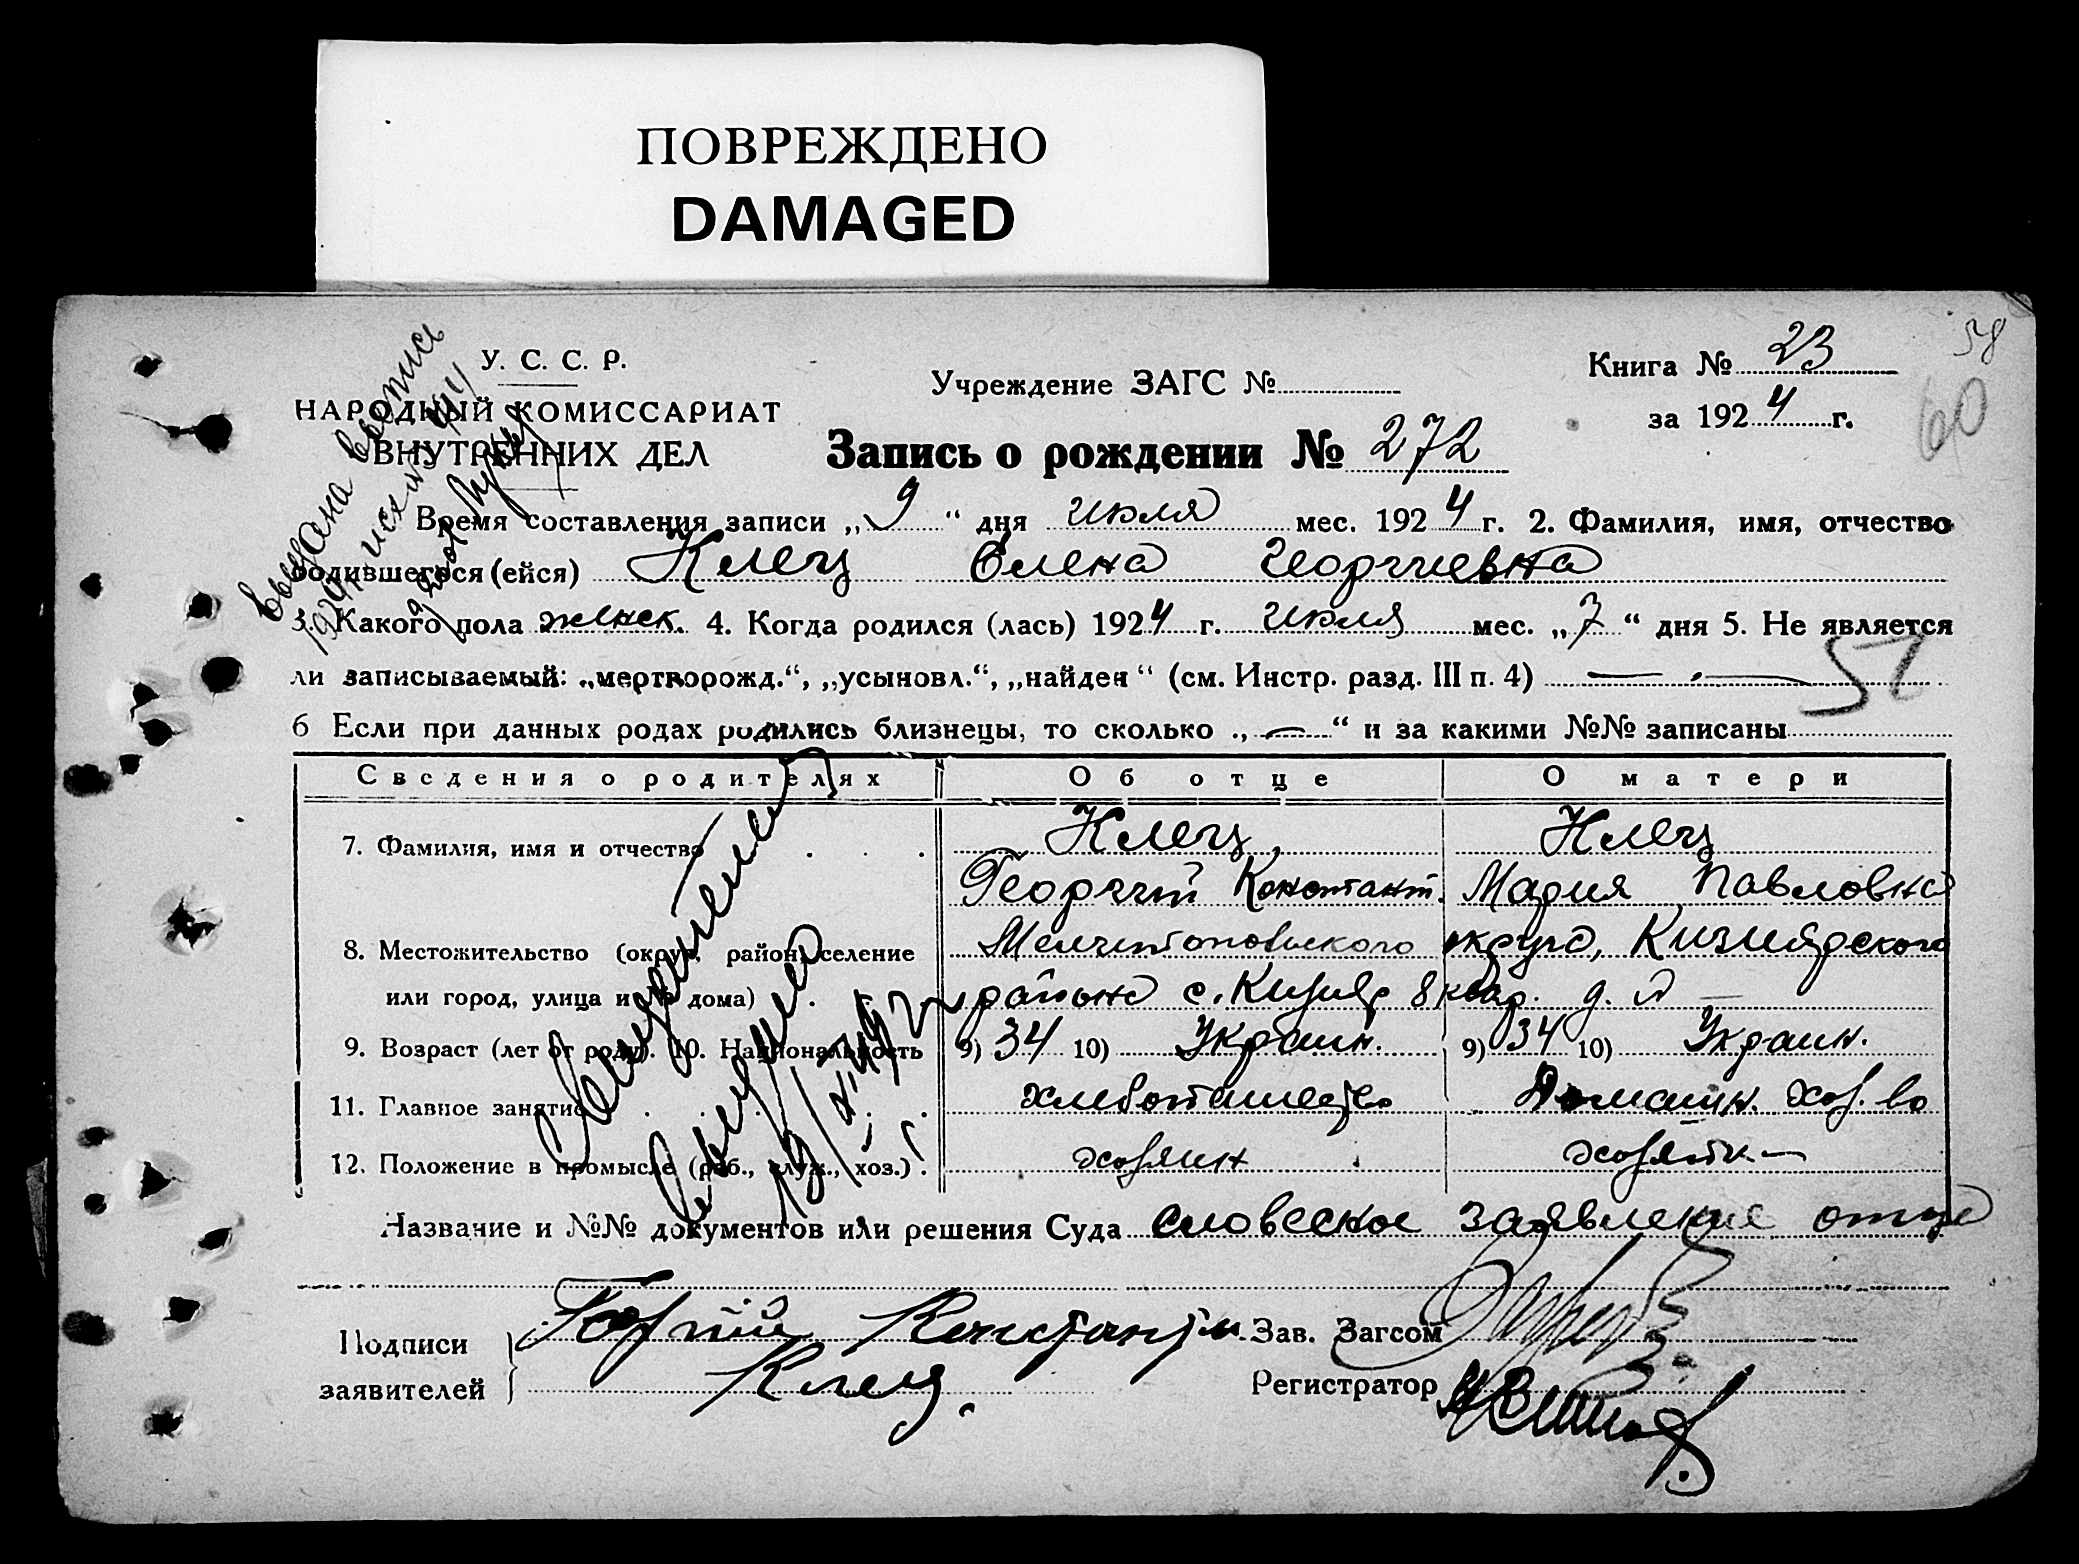 ПОВРЕЖДЕНО
DAMAGED
У. С. С. Р.
НАРОДНЫЙ КОМИССАРИАТ
ВНУТРЕННИХ ДЕЛ
Учреждение ЗАГС №
Книга № 23
за 1924 г.
58
60
Запись о рождении № 272
Выдана выпись
Время составления записи „9“ дня июля мес. 1924 г. 2. Фамилия, имя, отчество
родившегося (ейся) Клец Елена Георгиевна
3. Какого пола женск. 4. Когда родился (лась) 1924 г. июля мес. „7“ дня 5. Не является
ли записываемый: „мертворожд.“, „усыновл.“, „найден“ (см. Инстр. разд. III п. 4) — . —
51
6 Если при данных родах родились близнецы, то сколько „—“ и за какими №№ записаны
Сведения о родителях Об отце О матери
7. Фамилия, имя и отчество Клец, Клец
Георгий Констант  . Мария Павловна
8. Местожительство (округ, район, селение Мелитопольского округа, Кизиярского
или город, улица и № дома) района с. Кизияр 8 квар. д. №  —
9. Возраст (лет от роду). 10. Национальность 9) 34 10) Украин. 9) 34 10) Украин.
11. Главное занятие хлебопашество Домашн. хоз. во
12. Положение в промысле (раб., служ., хоз.) хозяин хозяйка
Свидетельство
Название и №№ документов или решения Суда словесное заявление отца
Подписи заявителей Георгий Константин
Клец.
Зав. Загсом
Регистратор